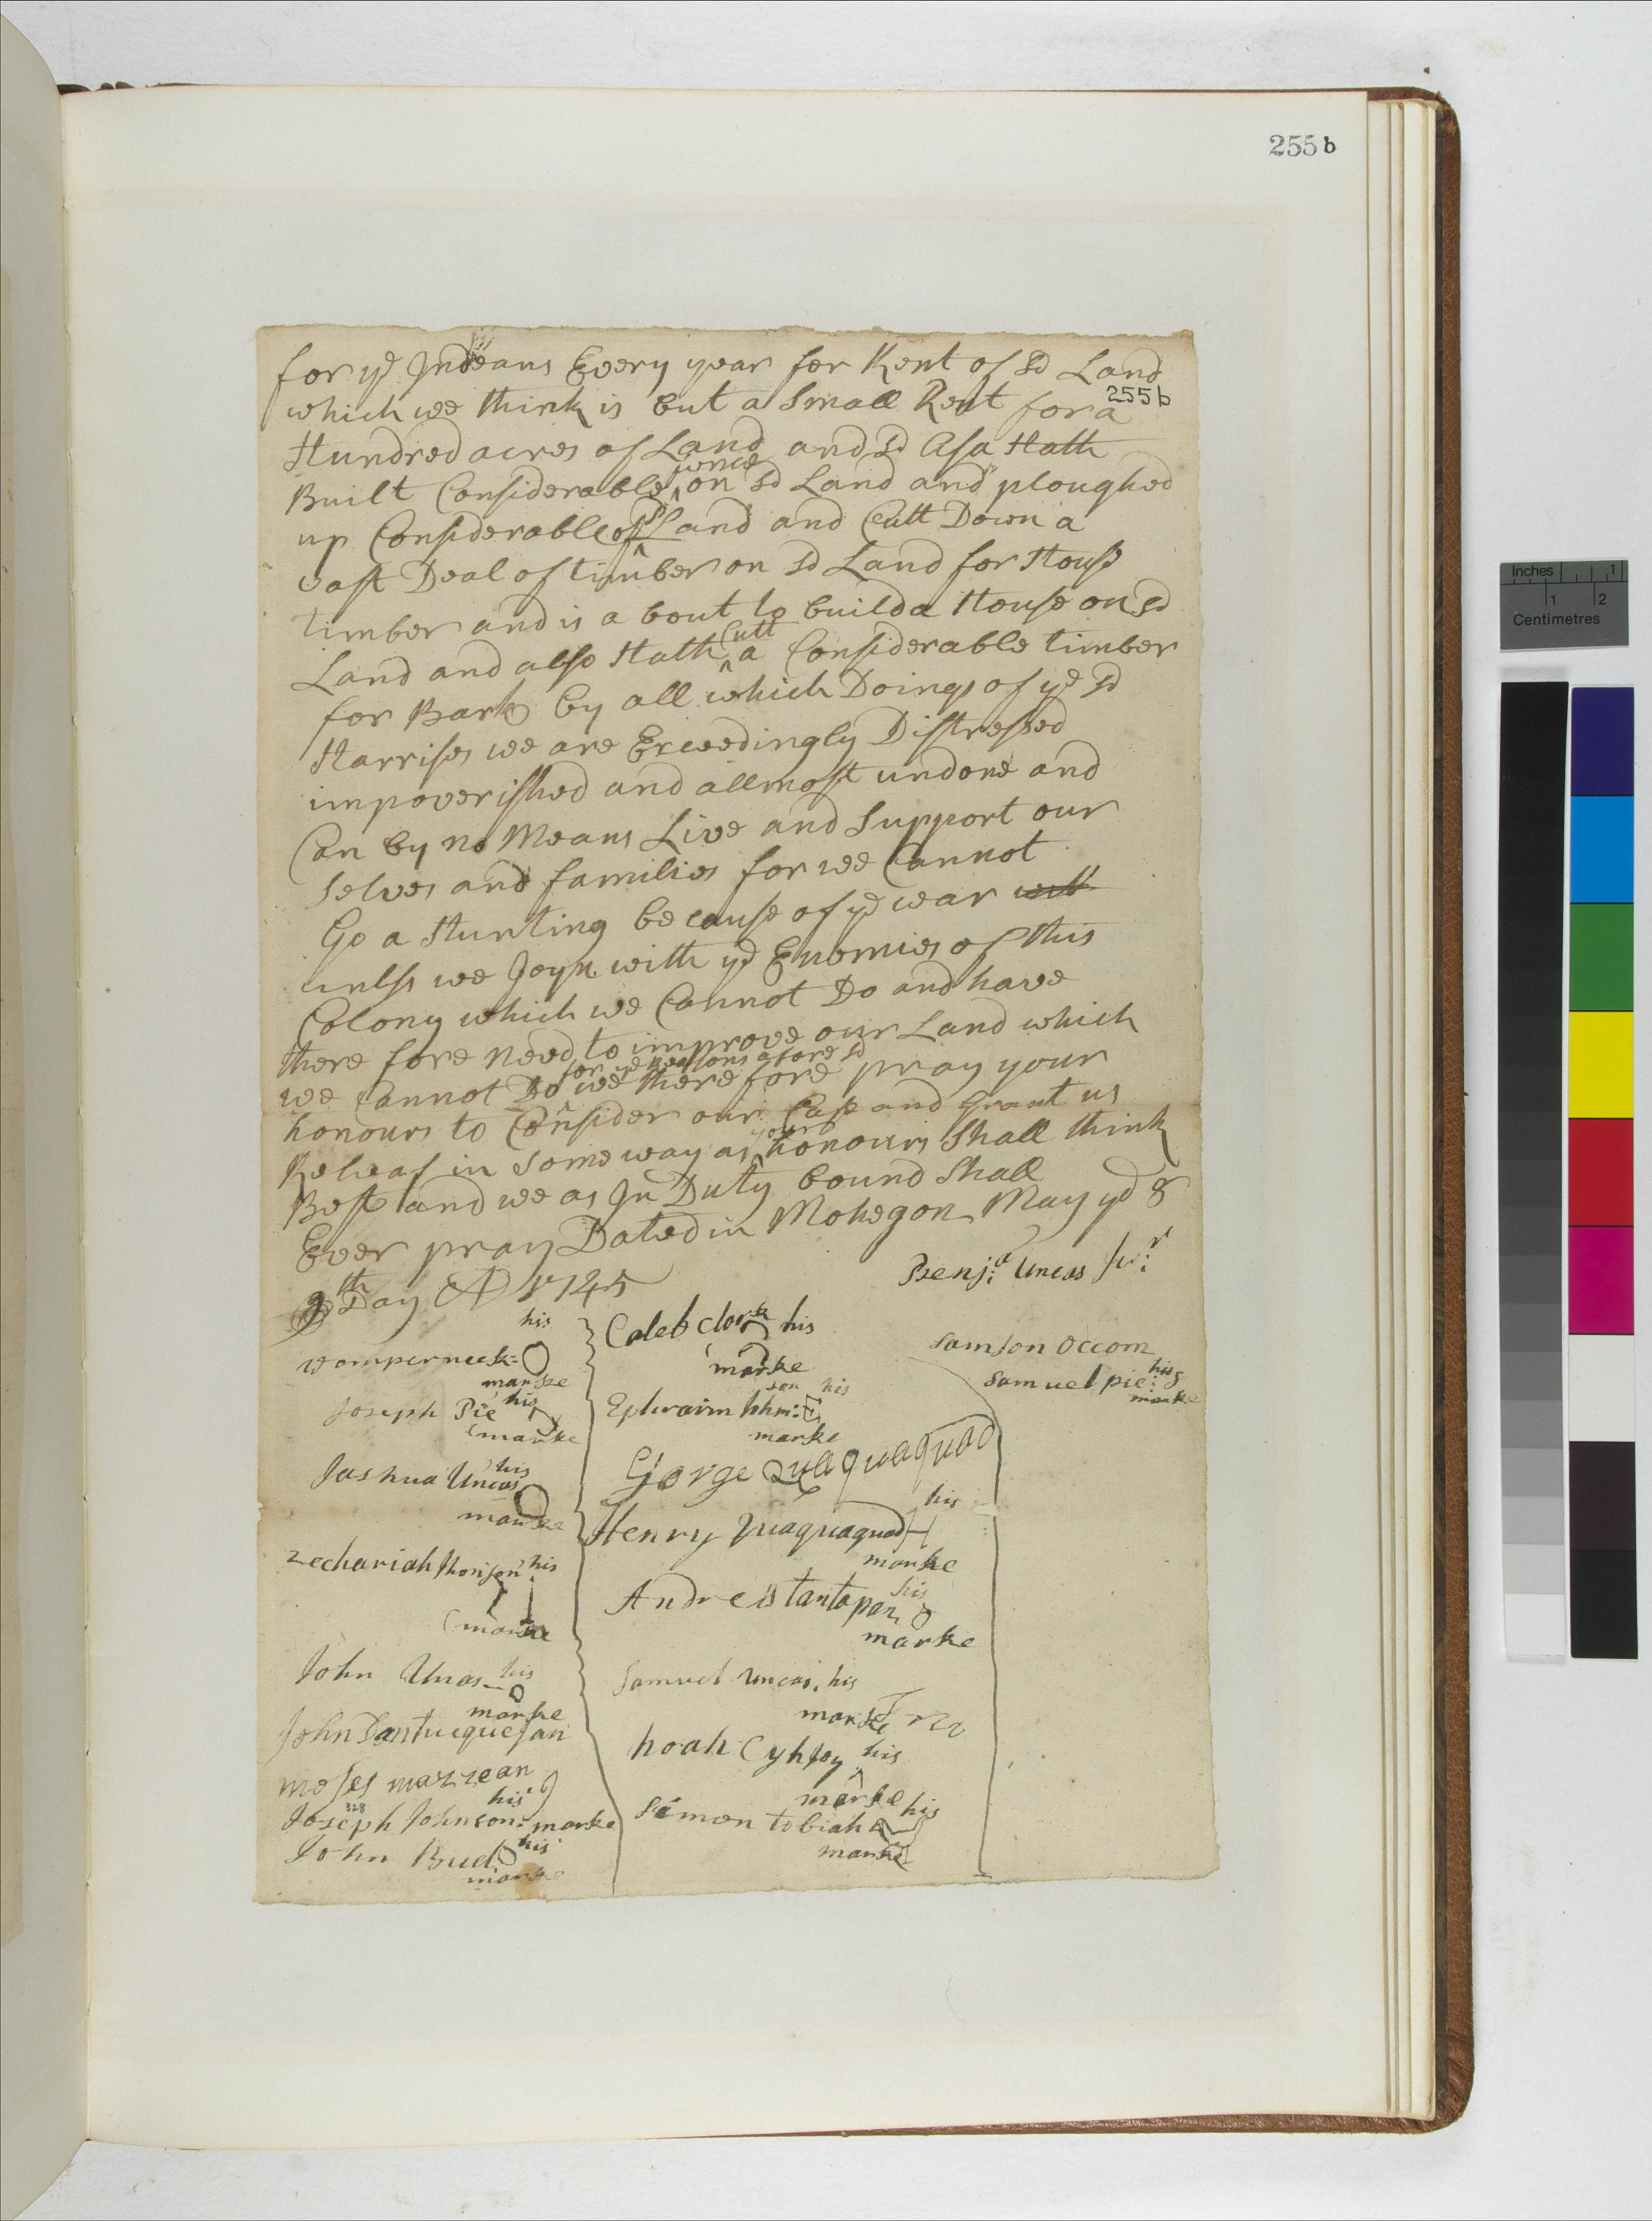 255 b
for ye Indeans Every year for Rent of sd Land
255 b
which we think is but a Small Rent for a
Hundred acres of Land and sd Asa Hath
Built Considerable fence on sd Land and ploughed
up Considerable of sd Land and Cutt Down a
vast Deal of timber on sd Land for House
timber and is a bout to build a House on sd
Land and also Hath Cutt a Considerable timber
for Bark by all which Doings of ye sd
Harrises we are Exceedingly Distressed
impoverished and allmost undone and
Can by no Means Live and Support our
Selves and families for we Cannot
Go a Hunting because of ye war
unless we Joyn with ye Enemies of this
Colony which we Cannot Do and have
there fore need to improve our Land which
we Cannot Do for ye Reasons afore sd we there fore pray your
honours to Consider our Case and Grant us
Releaf in Some way as your honours Shall think
Best and we as In Duty bound Shall
Ever pray Dated in Mohegon May ye 8
9th Day AD 1745
Benj:a Uncas Ju:r
his
womperneek=O
marke
Joseph Pie his
marke
Jashua Uncas his
marke
Zechariah Thonson his
marke
John Unas his
marke
John Tantuequesan
moses mazzean
328
Joseph Johnson: his marke
John Bud his
marke
Caleb clork his
marke
Ephraim Johnson his
marke
George Quaquaquad
Henry Quaquaquad his
marke
Andreis tantapan his
marke
Samuel uncas, his
marke
noah Cyhsoy his
marke
Simon tobiah his
marke
Samson Occom
Samuel pie: his
marke